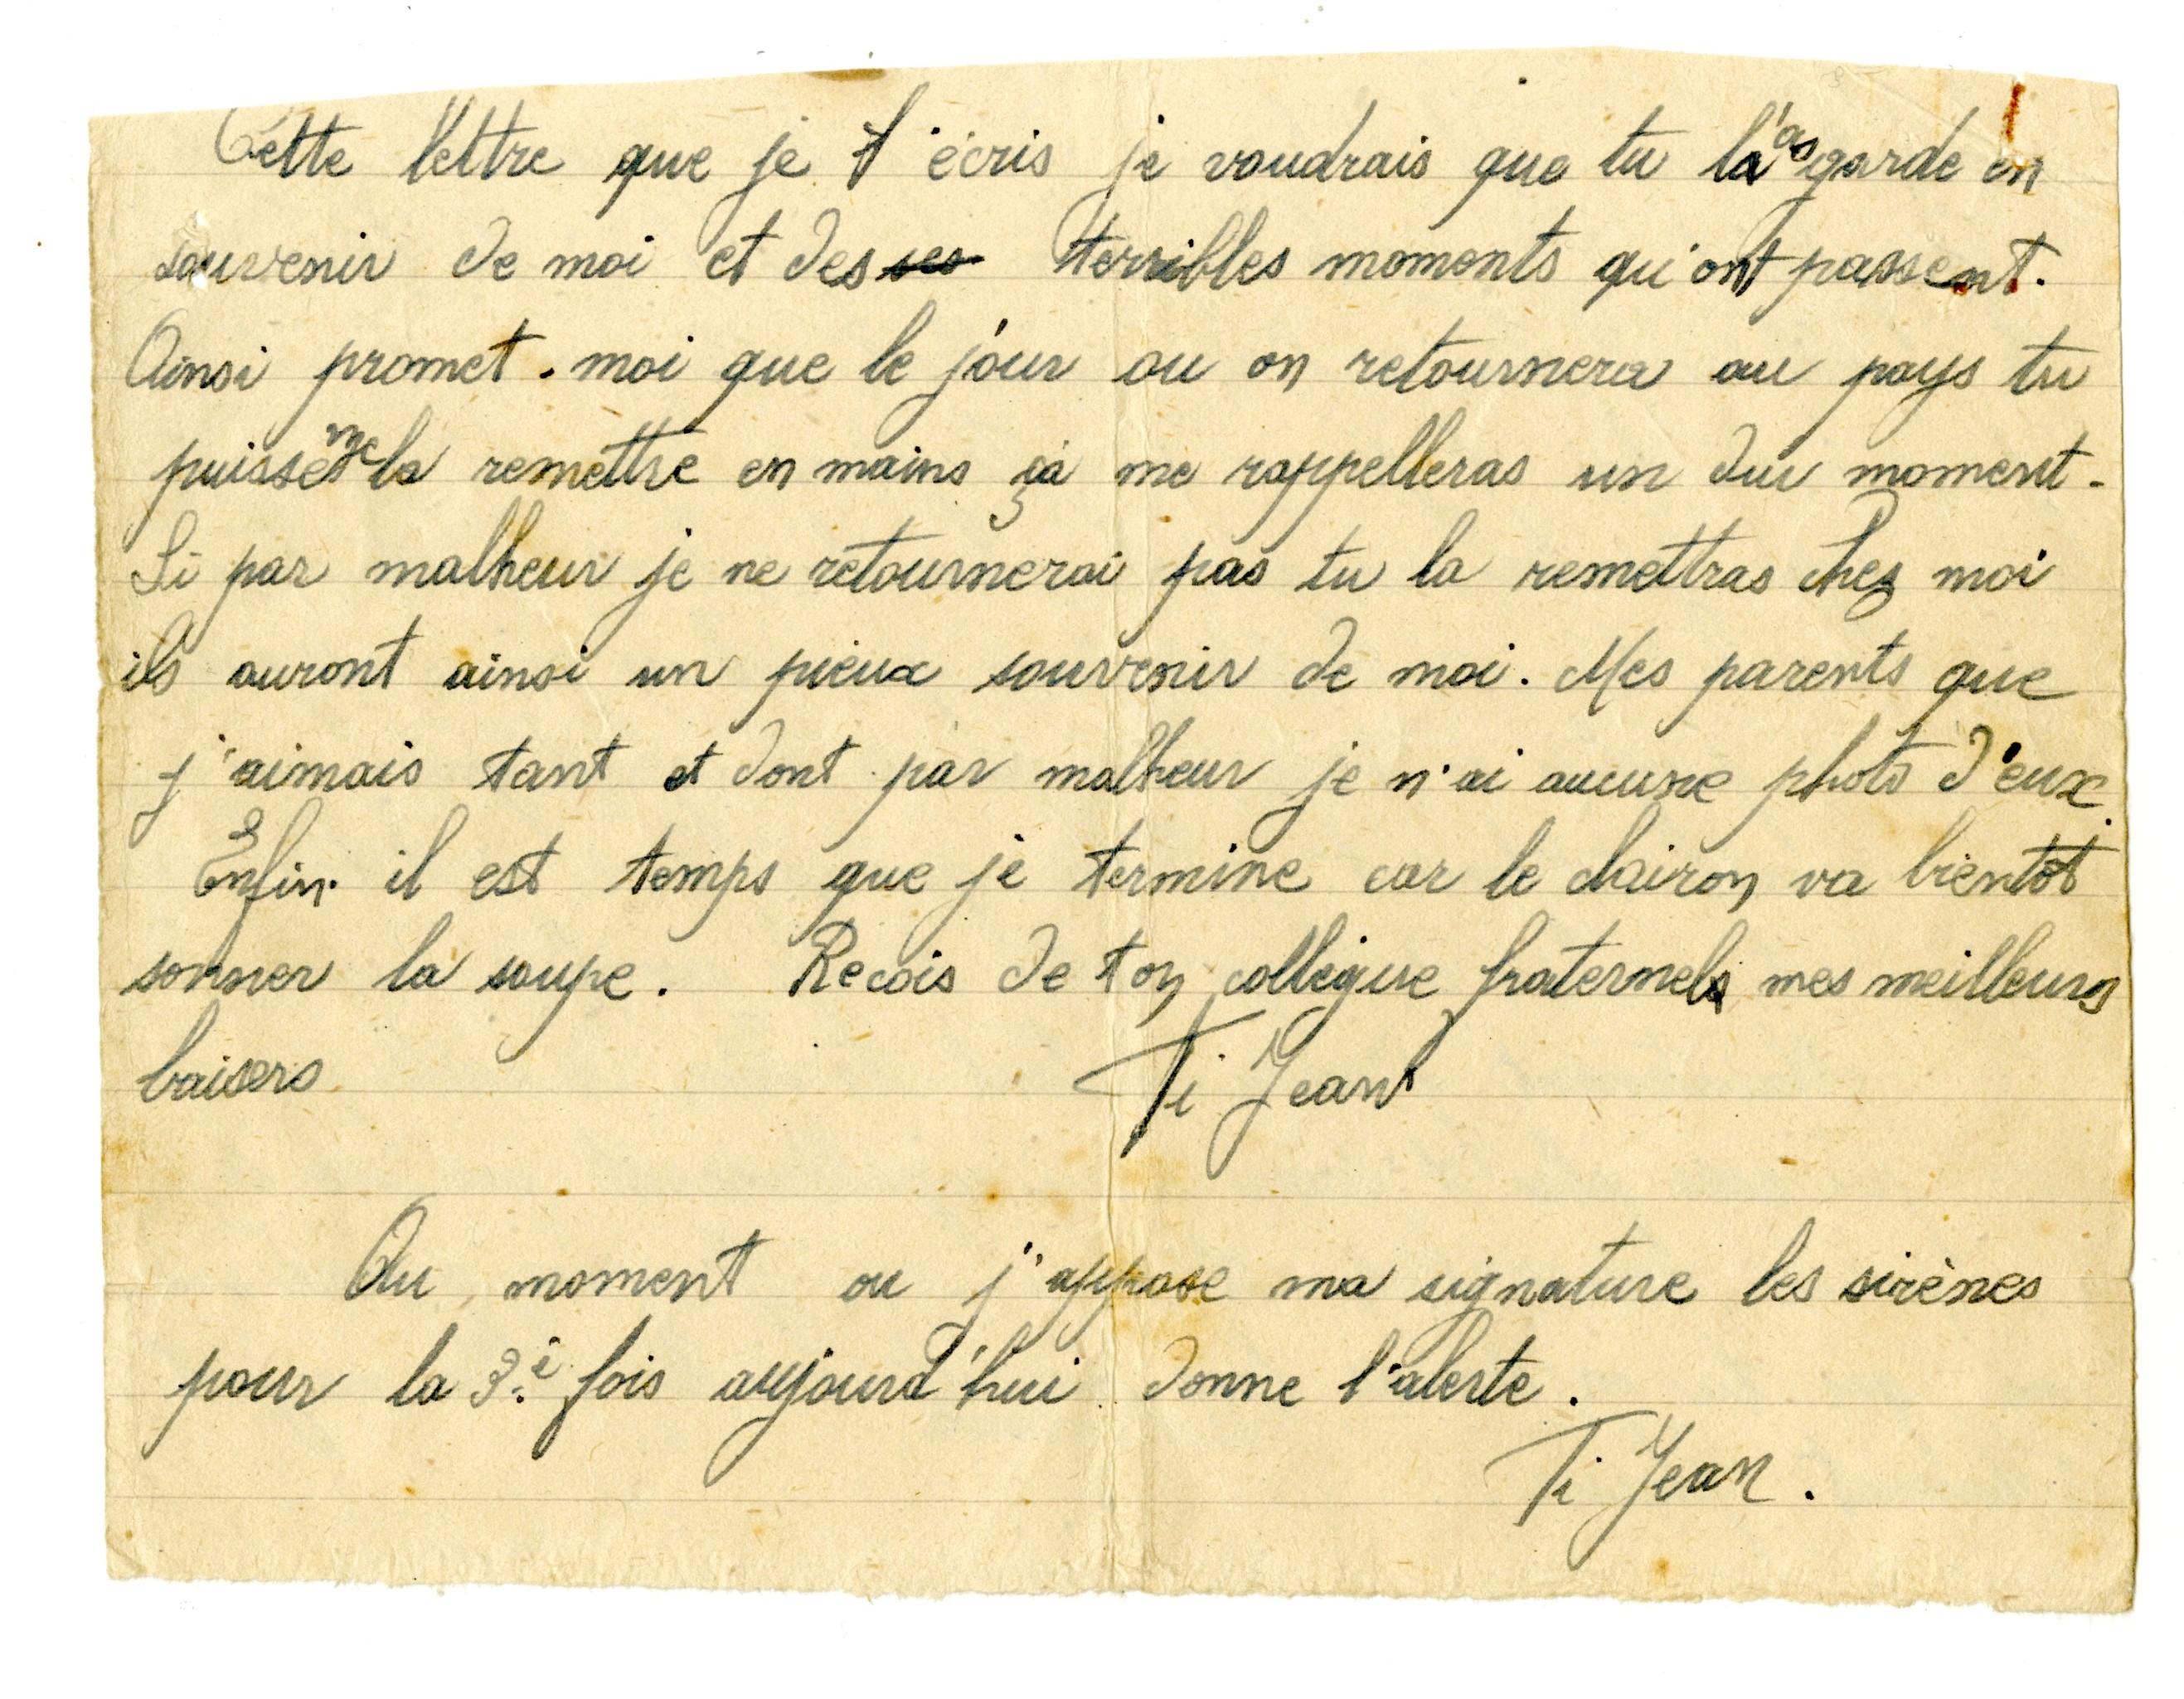 Cette lettre que je t'écris je voudrais que tu la garde en
souvenir de moi et des ses terribles moments qu'ont passent.
Ainsi promet-moi que le jour ou on retournera au pays tu
puisse me la remettre en mains ça me rappelleras un dur moment.
Si par malheur je ne retournerai pas tu la remettras chez moi
ils auront ainsi un pieux souvenir de moi. Mes parents que
j'aimais tant et dont par malheur je n'ai aucune photo d'eux.
Enfin il est temps que je termine car le clairon va bientôt
sonner la soupe. Recois de ton collègue fraternels mes meilleurs
baisers
Ti Jean
Au moment ou j'appose ma signature les sirènes
pour la 3è fois aujourd'hui donne l'alerte.
Ti Jean.